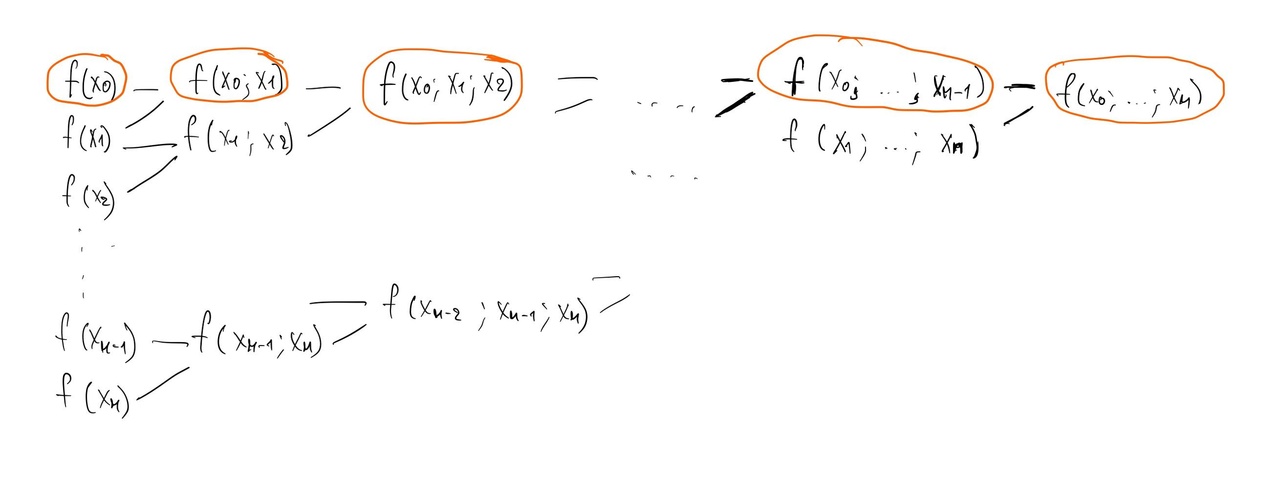 f(x0) — f(x0; x1) — f(x0; x1; x2) — .... — f(x0; ...; xn-1) — f(x0; ...; xn)
f(x1) — f(x1; x2) f(x1; ...; xn)
f(x2) ....
f(xn-1) — f(xn-1; xn) — f(xn-2; xn-1; xn) —
f(xn)